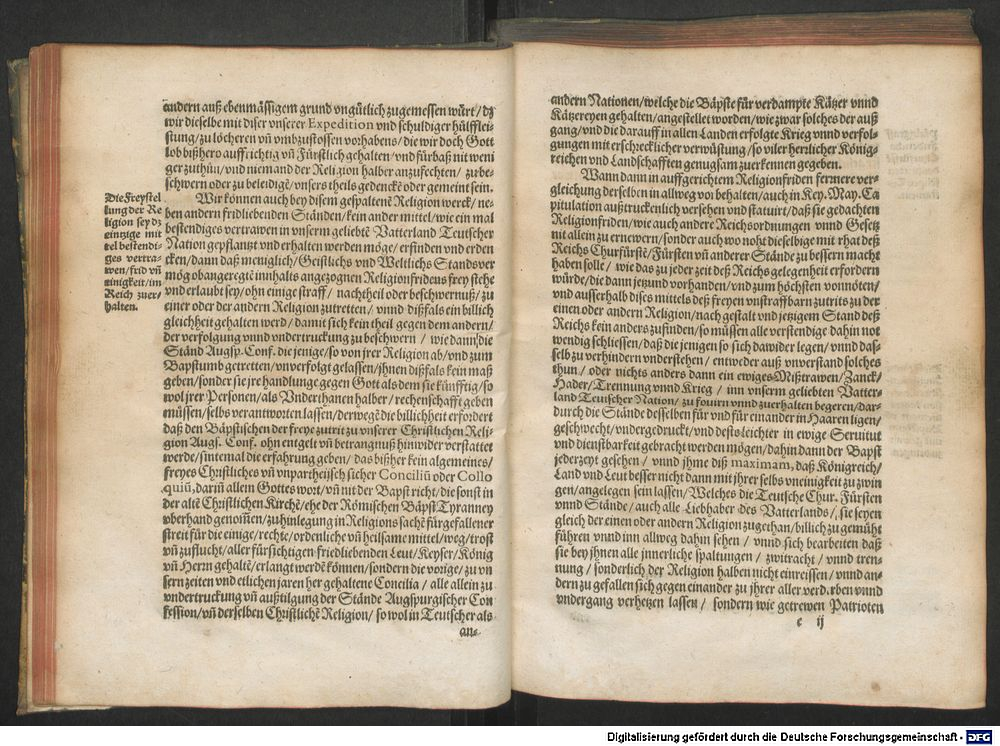 andern auß ebenmässigem grund vngütlich zugemessen würt/ dz
wir dieselbe mit diser vnserer Expedition vnd schuldiger hülfflei-
stung/ zu löcheren vñ vmbzustossen vorhabens/ die wir doch Gott
lob bißhero auffrichtig vñ Fürstlich gehalten/ vnd fürbaß mit weni
ger zuthůn/ vnd niemand der Religion halber anzufechten/ zube-
schwern oder zu beleidigẽ/ vnsers theils gedenckẽ oder gemeint sein.
Wir können auch bey disem gespaltenẽ Religion werck/ ne-
ben andern fridliebenden Ständen/ kein ander mittel/ wie ein mal
bestendiges vertrawen in vnserm geliebtẽ Vatterland Teutscher
Nation gepflantzt vnd erhalten werden möge/ erfinden vnd erden
cken/ dann daß meniglich/ Geistlichs vnd Weltlichs Stands ver
mög obangeregtẽ innhalts angezognen Religionfridens frey stehe
vnd erlaubt sey/ ohn einige straff/ nachtheil oder beschwernuß/ zu
einer oder der andern Religion zutretten/ vnnd dißfals ein billich
gleichheit gehalten werd/ damit sich kein theil gegen dem andern/
der verfolgung vnnd vndertruckung zu beschwern/ wie dann die
Ständ Augsp. Conf. die jenige/ so von jrer Religion ab/ vnd zum
Bapstumb getretten/ vnverfolgt gelassen/ jhnen dißfals kein maß
geben/ sonder sie jre handlunge gegen Gott als dem sie künfftig/ so
wol jrer Personen/ als Vnderthanen halber/ rechenschafft geben
müssen/ selbs verantworten lassen/ derwegẽ die billichheit erfordert
daß den Bäpstischen der freye zutrit zu vnserer Christlichen Reli-
gion Augs. Conf. ohn entgelt vñ betrangnuß hinwider verstattet
werde/ sintemal die erfahrung geben/ das bißher kein algemeines/
freyes Christliches vñ vnpartheysch sicher Conciliũ oder Collo
quiũ, darin allein Gottes wort/ vñ nit der Bapst richt/ die sonst in
der altẽ Christlichen Kirchẽ/ ehe der Römischen Bäpst Tyranney
vberhand genom̃en/ zu hinlegung in Religions sachẽ fürgefallener
streit für die einige/ rechte/ ordenliche vñ heilsame mittel/ weg/ trost
vñ zuflucht/ aller fürsichtigen friedliebenden Leut/ Keyser/ König
vñ Herrn gehaltẽ/ erlangt werdẽ können/ sondern die vorige/ zu vn
sern zeiten vnd etlichen jaren her gehaltene Concilia/ alle allein zu
vndertruckung vñ außtilgung der Stände Augspurgischer Con
fession/ vñ derselben Christlichẽ Religion/ so wol in Teutscher als
an-
Die Freystel
lung der Re
ligion sey dz
eintzige mit
tel bestendi-
ges vertra-
wen/ frid vñ
einigkeit/ im
Reich zuer-
halten.
andern Nationen/ welche die Bäpste für verdampte Kätzer vnnd
Kätzereyen gehalten/ angestellet worden/ wie zwar solches der auß
gang/ vnd die darauff in allen Landen erfolgte Krieg vnnd verfol-
gungen mit erschrecklicher verwüstung/ so viler herrlicher König-
reichen vnd Landschafften genugsam zuerkennen gegeben.
Wann dann in auffgerichtem Religionfriden fernere ver-
gleichung derselben in allweg vorbehalten/ auch in Key. May. Ca
pitulation außtruckenlich versehen vnd statuirt/ daß sie gedachten
Religionfriden/ wie auch andere Reichsordnungen vnnd Gesetz
nit allein zu ernewern/ sonder auch wo noht dieselbige mit rhat deß
Reichs Churfürstẽ/ Fürsten vñ anderer Stände zu bessern macht
haben solle/ wie das zu jeder zeit deß Reichs gelegenheit erfordern
würde/ die dann jetzund vorhanden/ vnd zum höchsten vonnöten/
vnd ausserhalb dises mittels deß freyen vnstraffbarn zutrits zu der
einen oder andern Religion/ nach gestalt vnd jetzigem Stand deß
Reichs kein anders zufinden/ so müssen alle verstendige dahin not
wendig schliessen/ daß die jenigen so sich dawider legen/ vnnd das-
selb zu verhindern vnderstehen/ entweder auß vnverstand solches
thun/ oder nichts anders dann ein ewiges Mißtrawen/ Zanck/
Hader/ Trennung vnnd Krieg/ inn vnserm geliebten Vatter-
land Teutscher Nation/ zu fouirn vnnd zuerhalten begeren/ dar-
durch die Stände desselben für vnd für einander in Haaren ligen/
geschwecht/ vndergedruckt/ vnd desto leichter in ewige Seruitut
vnd dienstbarkeit gebracht werden mögen/ dahin dann der Bapst
jederzeyt gesehen/ vnnd jhme diß maximam, daß Königreich/
Land vnd Leut besser nicht dann mit jhrer selbs vneinigkeit zu zwin
gen/ angelegen sein lassen/ Welches die Teutsche Chur. Fürsten
vnnd Stände/ auch alle Liebhaber des Vatterlands/ sie seyen
gleich der einen oder andern Religion zugethan/ billich zu gemüht
führen vnnd inn allweg dahin sehen/ vnnd sich bearbeiten daß
sie bey jhnen alle jnnerliche spaltungen/ zwitracht/ vnnd tren-
nung/ sonderlich der Religion halben nicht einreissen/ vnnd an-
dern zu gefallen sich gegen einander zu jhrer aller verderben vnnd
vndergang verhetzen lassen/ sondern wie getrewen Patrioten
e ij
Digitalisierung gefördert durch die Deutsche Forschungsgemeinschaft - DFG